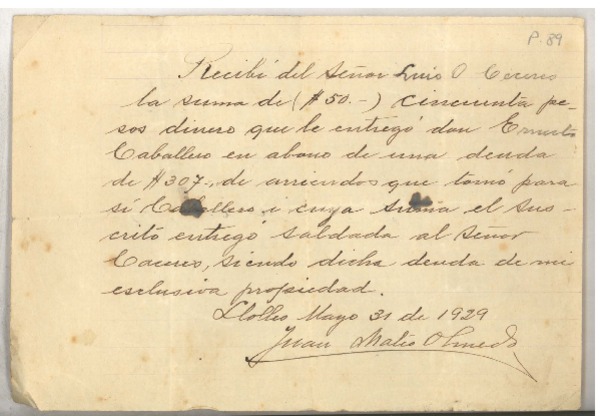 P. 89
Recibí del Señor Luis O Caceres
la suma de ($50.-) cincuenta pe-
sos dinero que le entregó don Ernesto
Caballero en abono de una deuda
de $307.- de arriendos que tomó para
sí Caballero i cuya suma el sus-
crito entregó saldada al Señor
Caceres, siendo dicha deuda de mi
esclusiva propiedad.
Llolleo Mayo 31 de 1929
Juan Mateo Olmedo